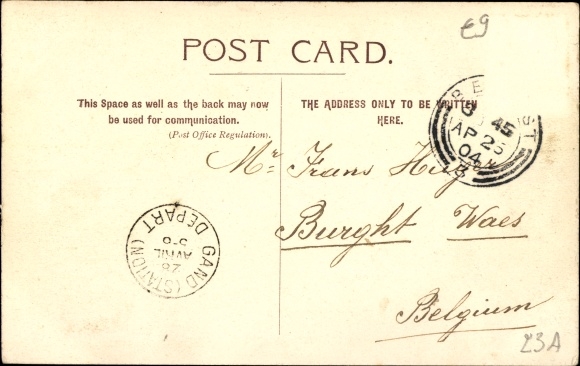 £9
POST CARD.
This Space as well as the back may now
be used for communication.
(Post Office Regulation).
THE ADDRESS ONLY TO BE WRITTEN
HERE.
BELFAST
45
AP 25
04
Mr Frans
Burght Waes
Belgium
GAND (STATION)
DEPART
26
AVRIL
23A